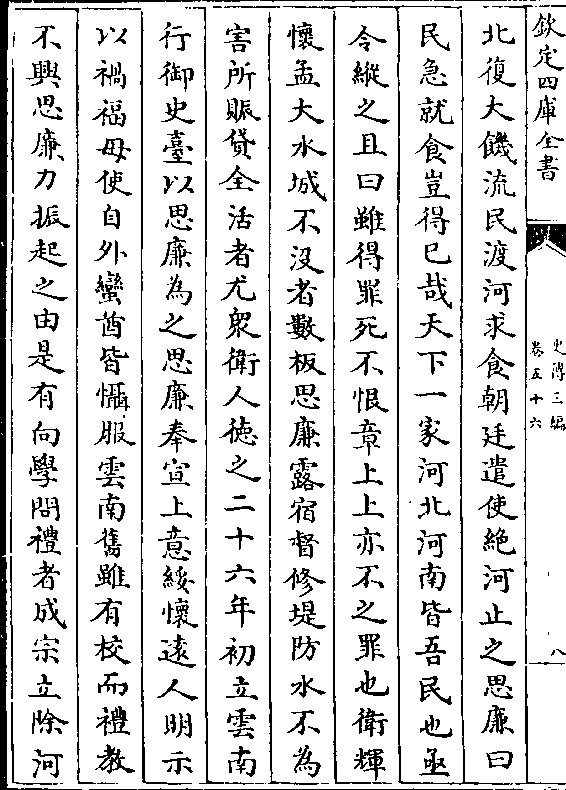 欽定四庫全書
史傳三編
卷五十六
八
北復大饑流民渡河求食朝廷遣使絶河止之思廉曰
民急就食豈得已哉天下一家河北河南皆吾民也亟
令縱之且曰雖得罪死不恨章上上亦不之罪也衛輝
懷孟大水城不没者數板思廉露宿督修堤防水不為
害所賑貸全活者尤衆衛人徳之二十六年初立雲南
行御史臺以思廉為之思廉奉宣上意綏懷逺人明示
以禍福毋使自外蠻酋皆懾服雲南舊雖有校而禮教
不興思廉力振起之由是有向學問禮者成宗立除河